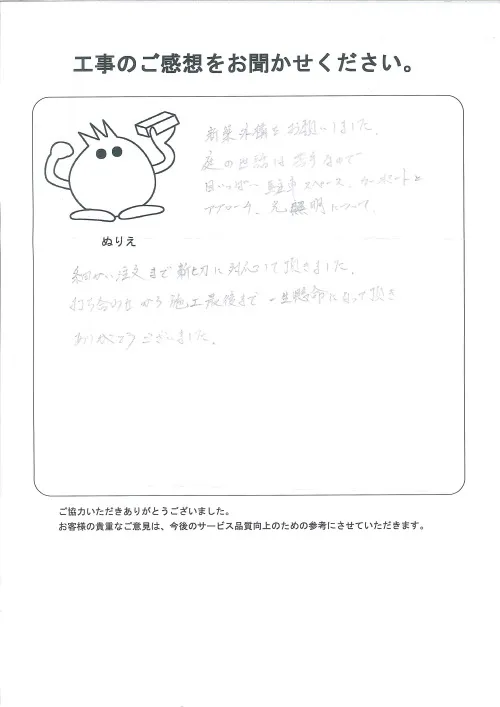 工事のご感想をお聞かせください。
新築外構をお願いしました。
庭の世話は苦手なので
目いっぱい駐車スペース、カーポートと
アプローチ、照明について
ぬりえ
細かい注文まで親切に対応して頂きました。
打ち合わせから施工最後まで一生懸命になって頂き
ありがとうございました。
ご協力いただきありがとうございました。
お客様の貴重なご意見は、今後のサービス品質向上のための参考にさせていただきます。